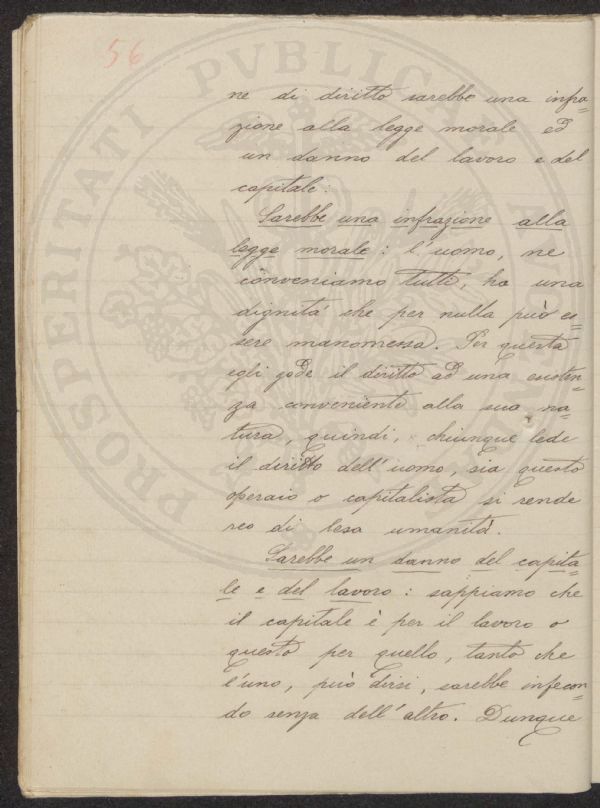 56
ne di diritto sarebbe una infra=
zione alla legge morale ed
un danno del lavoro e del
capitale:
Sarebbe una infrazione alla
legge morale: l'uomo, ne
conveniamo tutti, ha una
dignità che per nulla può es=
sere manomessa. Per questa
egli gode il diritto ad una esisten=
za conveniente alla sua na=
tura, quindi, chiunque lede
il diritto dell'uomo, sia questo
operaio o capitalista si rende
reo di lesa umanità.
Sarebbe un danno del capita=
le e del lavoro: sappiamo che
il capitale è per il lavoro o
questo per quello, tanto che
l'uno, può dirsi, sarebbe infecon=
do senza dell'altro. Dunque
PROSPERITATI PVBLICAE